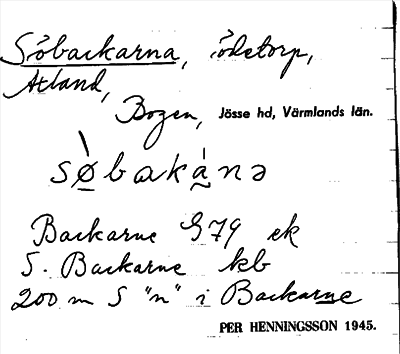 Söbackarna, ödetorp,
Ätland,
Bogen, Jösse hd, Värmlands län.
sø̀bakánə
Backarne G79 ek
S. Backarne kb
200 m S "n" i Backarne
PER HENNINGSSON 1945.